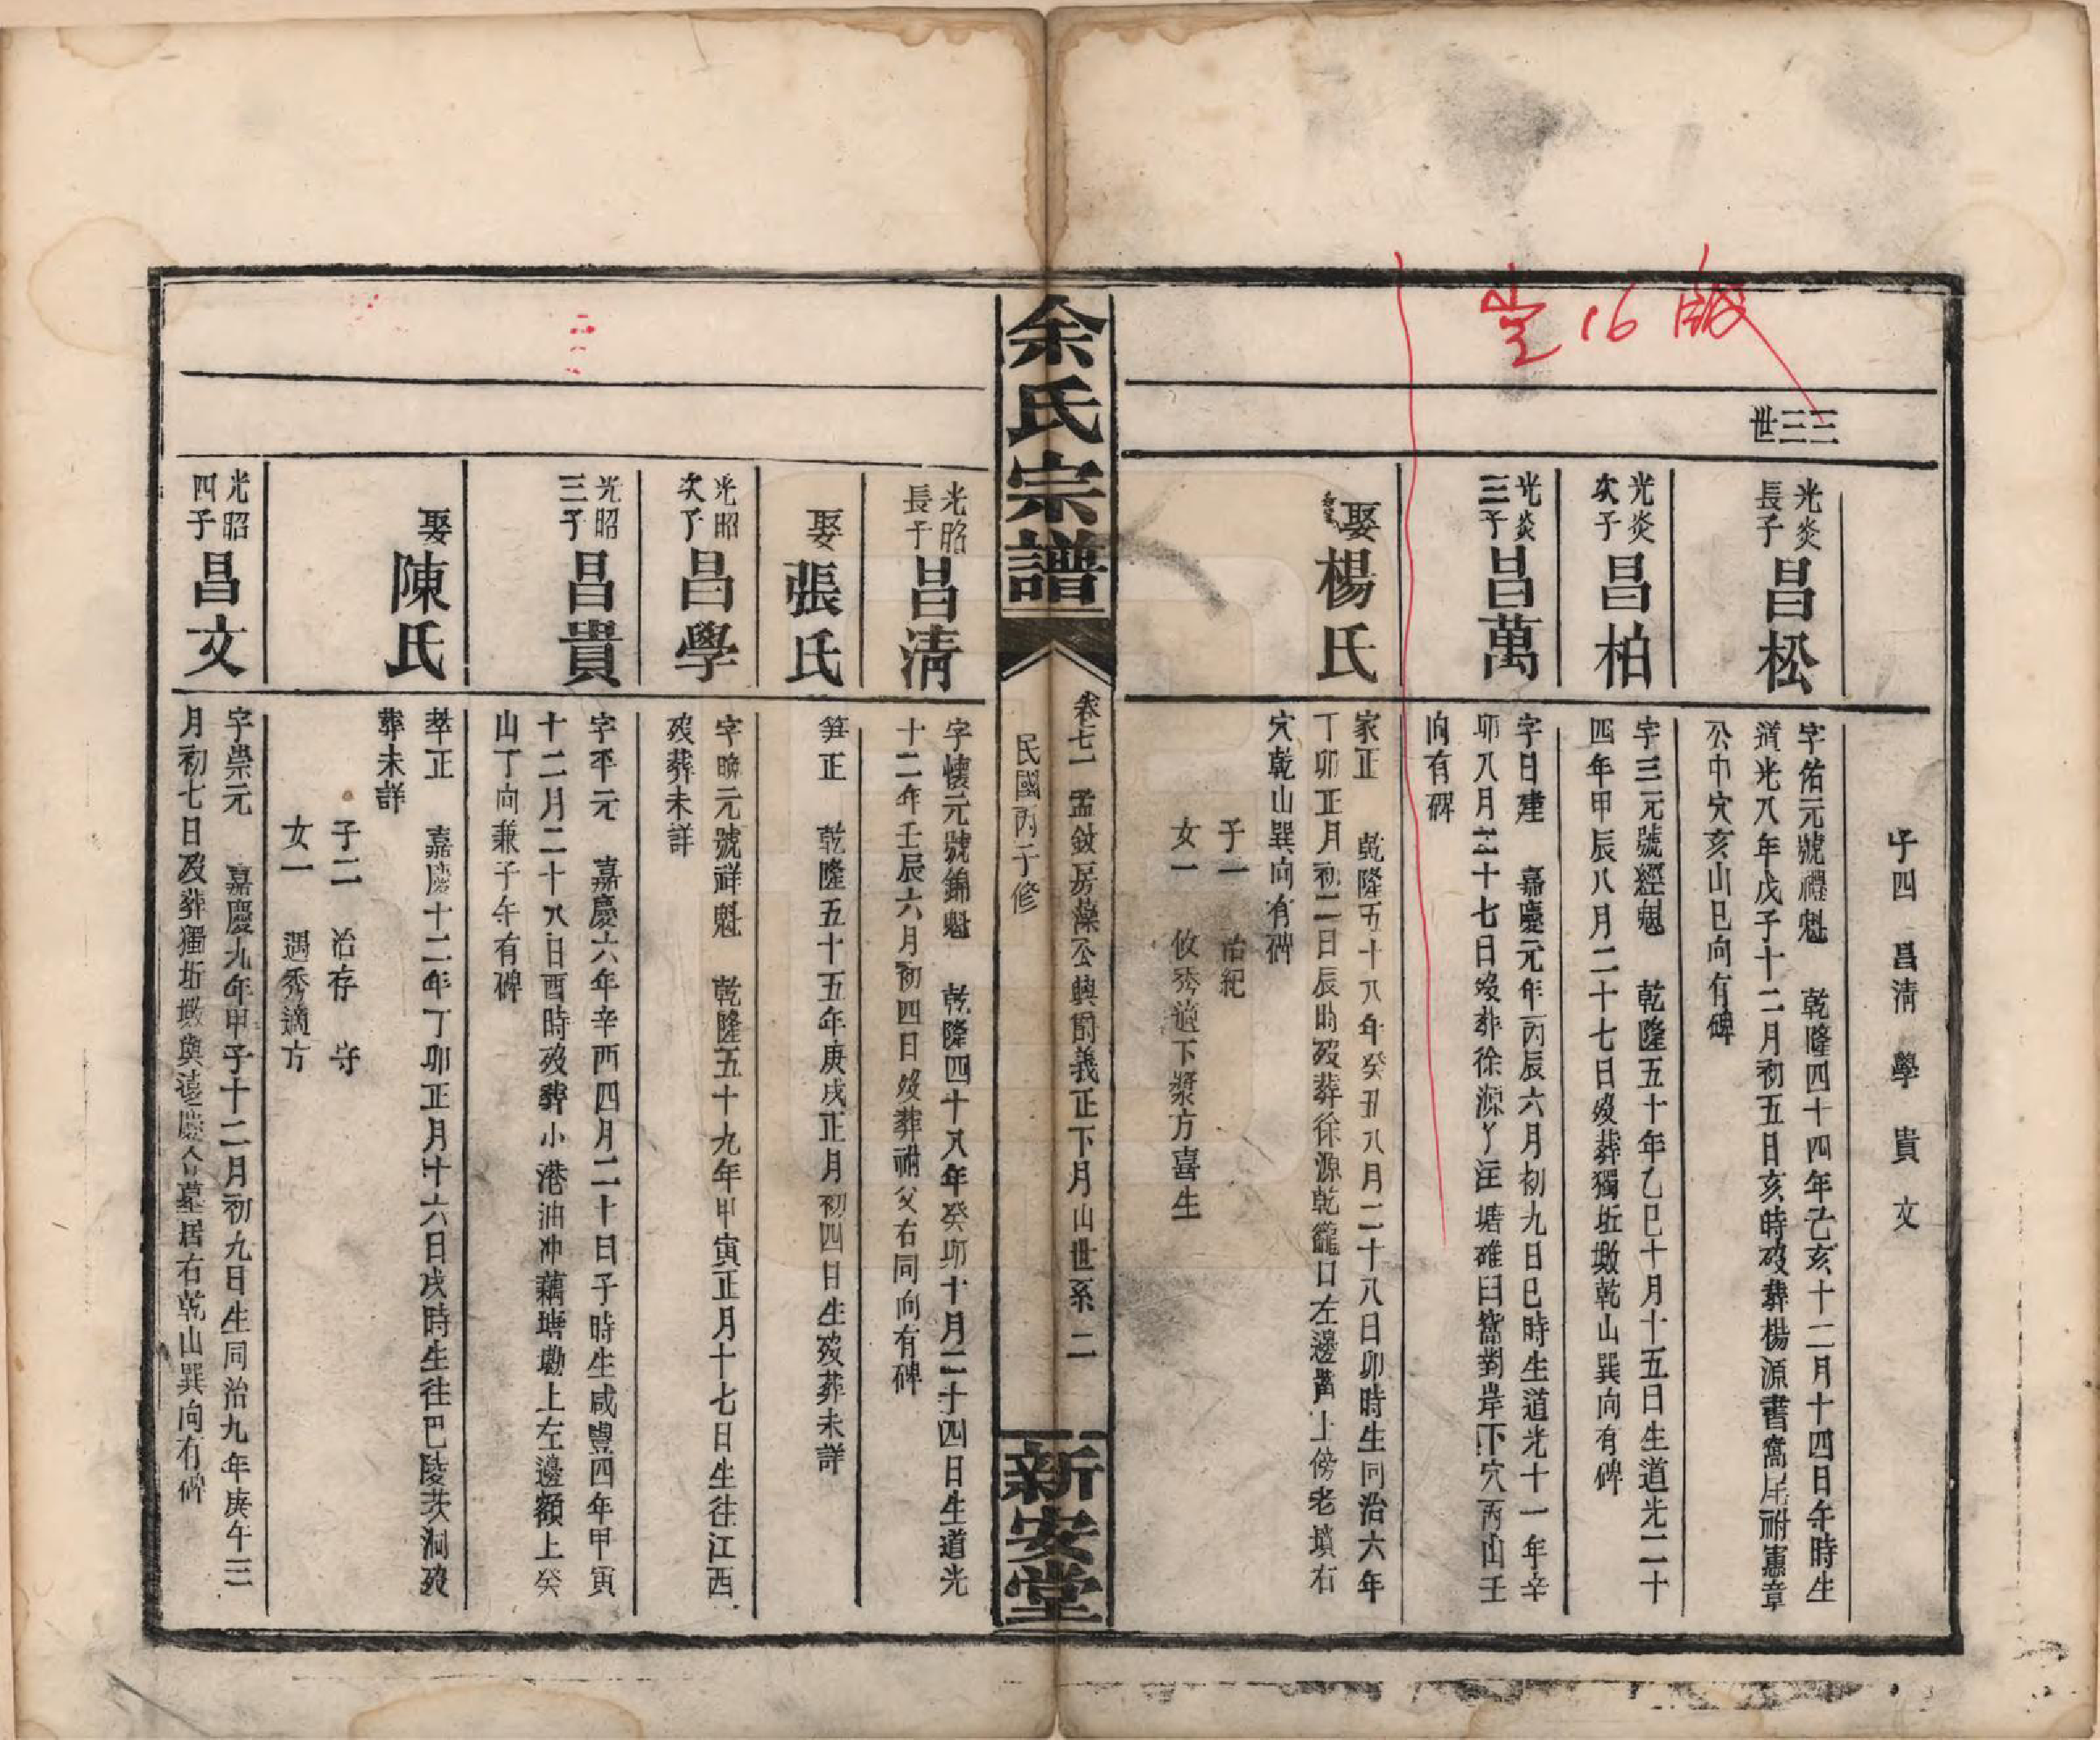 子四 昌清 學 貴 文
三三世
光炎長子 昌松
字佑元號禮魁 乾隆四十四年己亥十二月十四日午時生
道光八年戊子十二月初五日亥時歿葬楊源書窩尾祔憲章
公中穴亥山巳向有碑
光炎次子 昌柏
字三元號經魁 乾隆五十年乙巳十月十五日生道光二十
四年甲辰八月二十七日歿葬獨坵墩乾山巽向有碑
光炎三子 昌萬
字日建 嘉慶元年丙辰六月初九日巳時生道光十一年辛
卯八月二十七日歿葬徐源丫注塘碓臼窩對岸下穴丙山壬
向有碑
娶楊氏
家正 乾隆五十八年癸丑八月二十八日卯時生同治六年
丁卯正月初二日辰時歿葬徐源乾籠口左邊嘴上傍老墳右
穴乾山巽向有碑
子一 治紀
女一 攸秀適下漿方喜生
余氏宗譜
卷七一 孟鈫房藻公興爵義正下月山世系 二
民國丙子修
新安堂
光昭長子 昌清
字懷元號錦魁 乾隆四十八年癸卯十月二十四日生道光
十二年壬辰六月初四日歿葬祔父右同向有碑
娶張氏
笄正 乾隆五十五年庚戌正月初四日生歿葬未詳
光昭次子 昌學
字曉元號祥魁 乾隆五十九年甲寅正月十七日生往江西
歿葬未詳
光昭三子 昌貴
字平元 嘉慶六年辛酉四月二十日子時生咸豐四年甲寅
十二月二十八日酉時歿葬小港油冲藕塘墈上左邊額上癸
山丁向兼子午有碑
娶陳氏
莘正 嘉慶十二年丁卯正月十六日戌時生往巴陵茨洞歿
葬未詳
子二 治存 守
女一 遇秀適方
光昭四子 昌文
字崇元 嘉慶九年甲子十二月初九日生同治九年庚午三
月初七日歿葬獨坵墩與遠慶合墓居右乾山巽向有碑
16